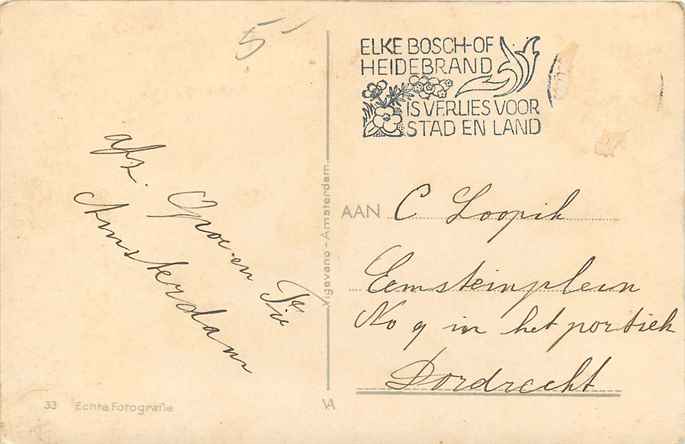 5
ELKE BOSCH-OF
HEIDEBRAND
IS VERLIES VOOR
STAD EN LAND
afz. Opa en Fie
Amsterdam
Vigevano - Amsterdam
AAN C Loopik
Eemsteinplein
No 9 in het portiek
Dordrecht
33 Echte Fotografie
VA